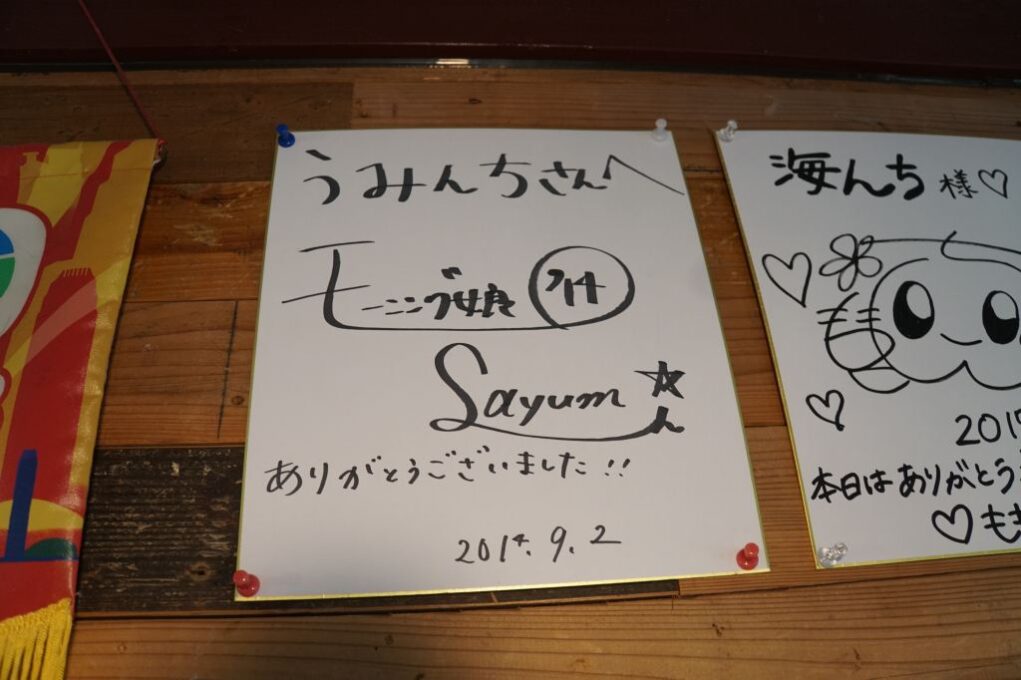 うみんちさんへ
モーニング娘 '14
Sayumん
ありがとうございました!!
2014.9.2
海んち様♡
201
本日はありがとう
♡もも